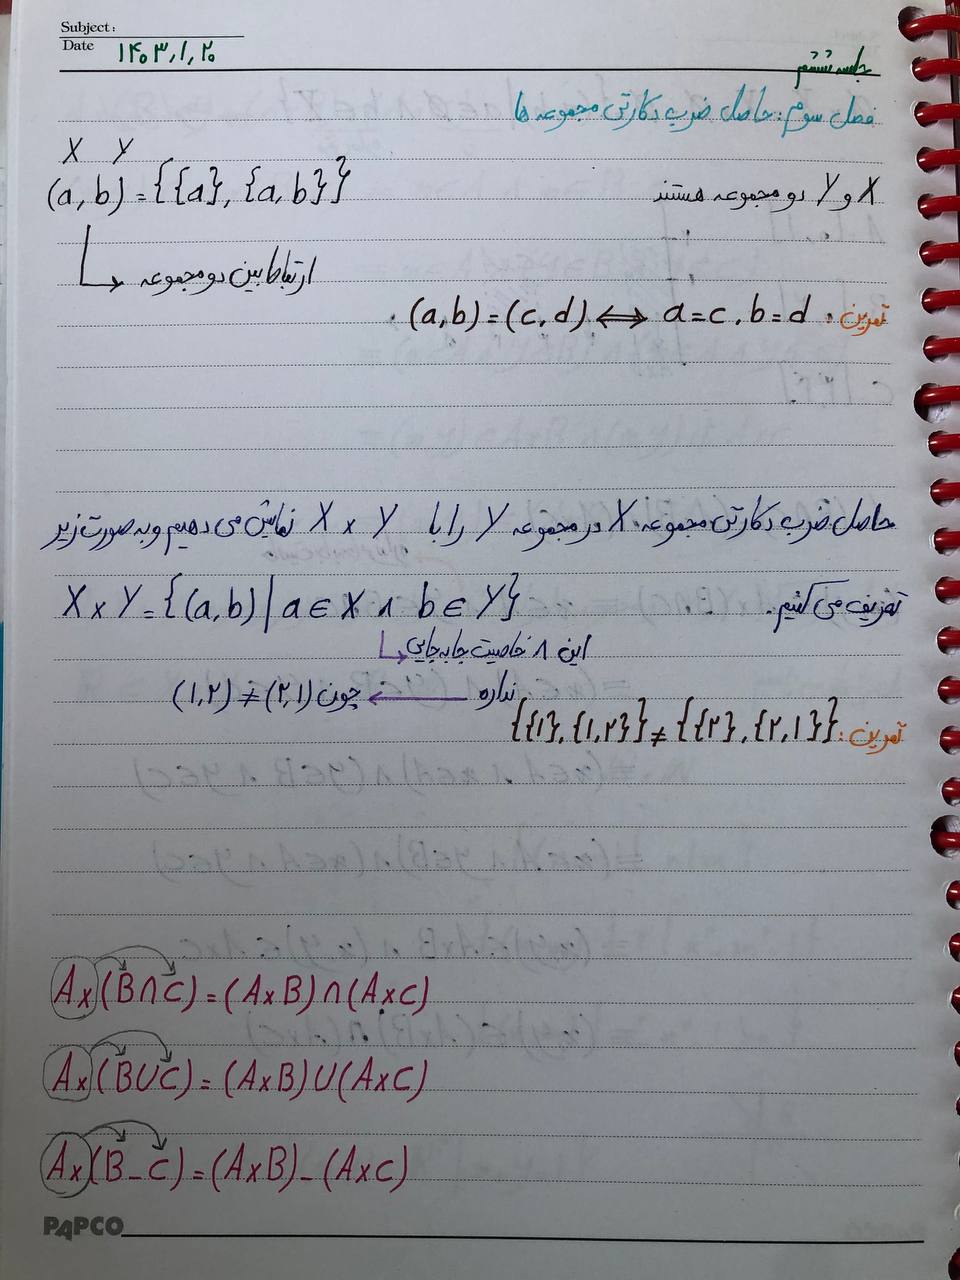 Subject:
Date ۱۴۰۳,۱,۲۰
جلسه ششم
فصل سوم: حاصل ضرب دکارتی مجموعه ها
X Y
X و Y دو مجموعه هستند
(a,b) = {{a}, {a,b}}
ارتباط بین دو مجموعه
تمرین: (a,b) = (c,d) ⟺ a=c , b=d
حاصل ضرب دکارتی مجموعه X در مجموعه Y را با X × Y نمایش می دهیم و به صورت زیر
تعریف می کنیم.
X × Y = {(a,b) | a ∈ X ∧ b ∈ Y}
این ∧ خاصیت جابه جایی
نداره ← چون (۲,۱) ≠ (۱,۲)
تمرین: {{۱}, {۱,۲}} ≠ {{۲}, {۲,۱}}
A×(B∩C) = (A×B)∩(A×C)
A×(B∪C) = (A×B)∪(A×C)
A×(B-C) = (A×B)-(A×C)
PAPCO